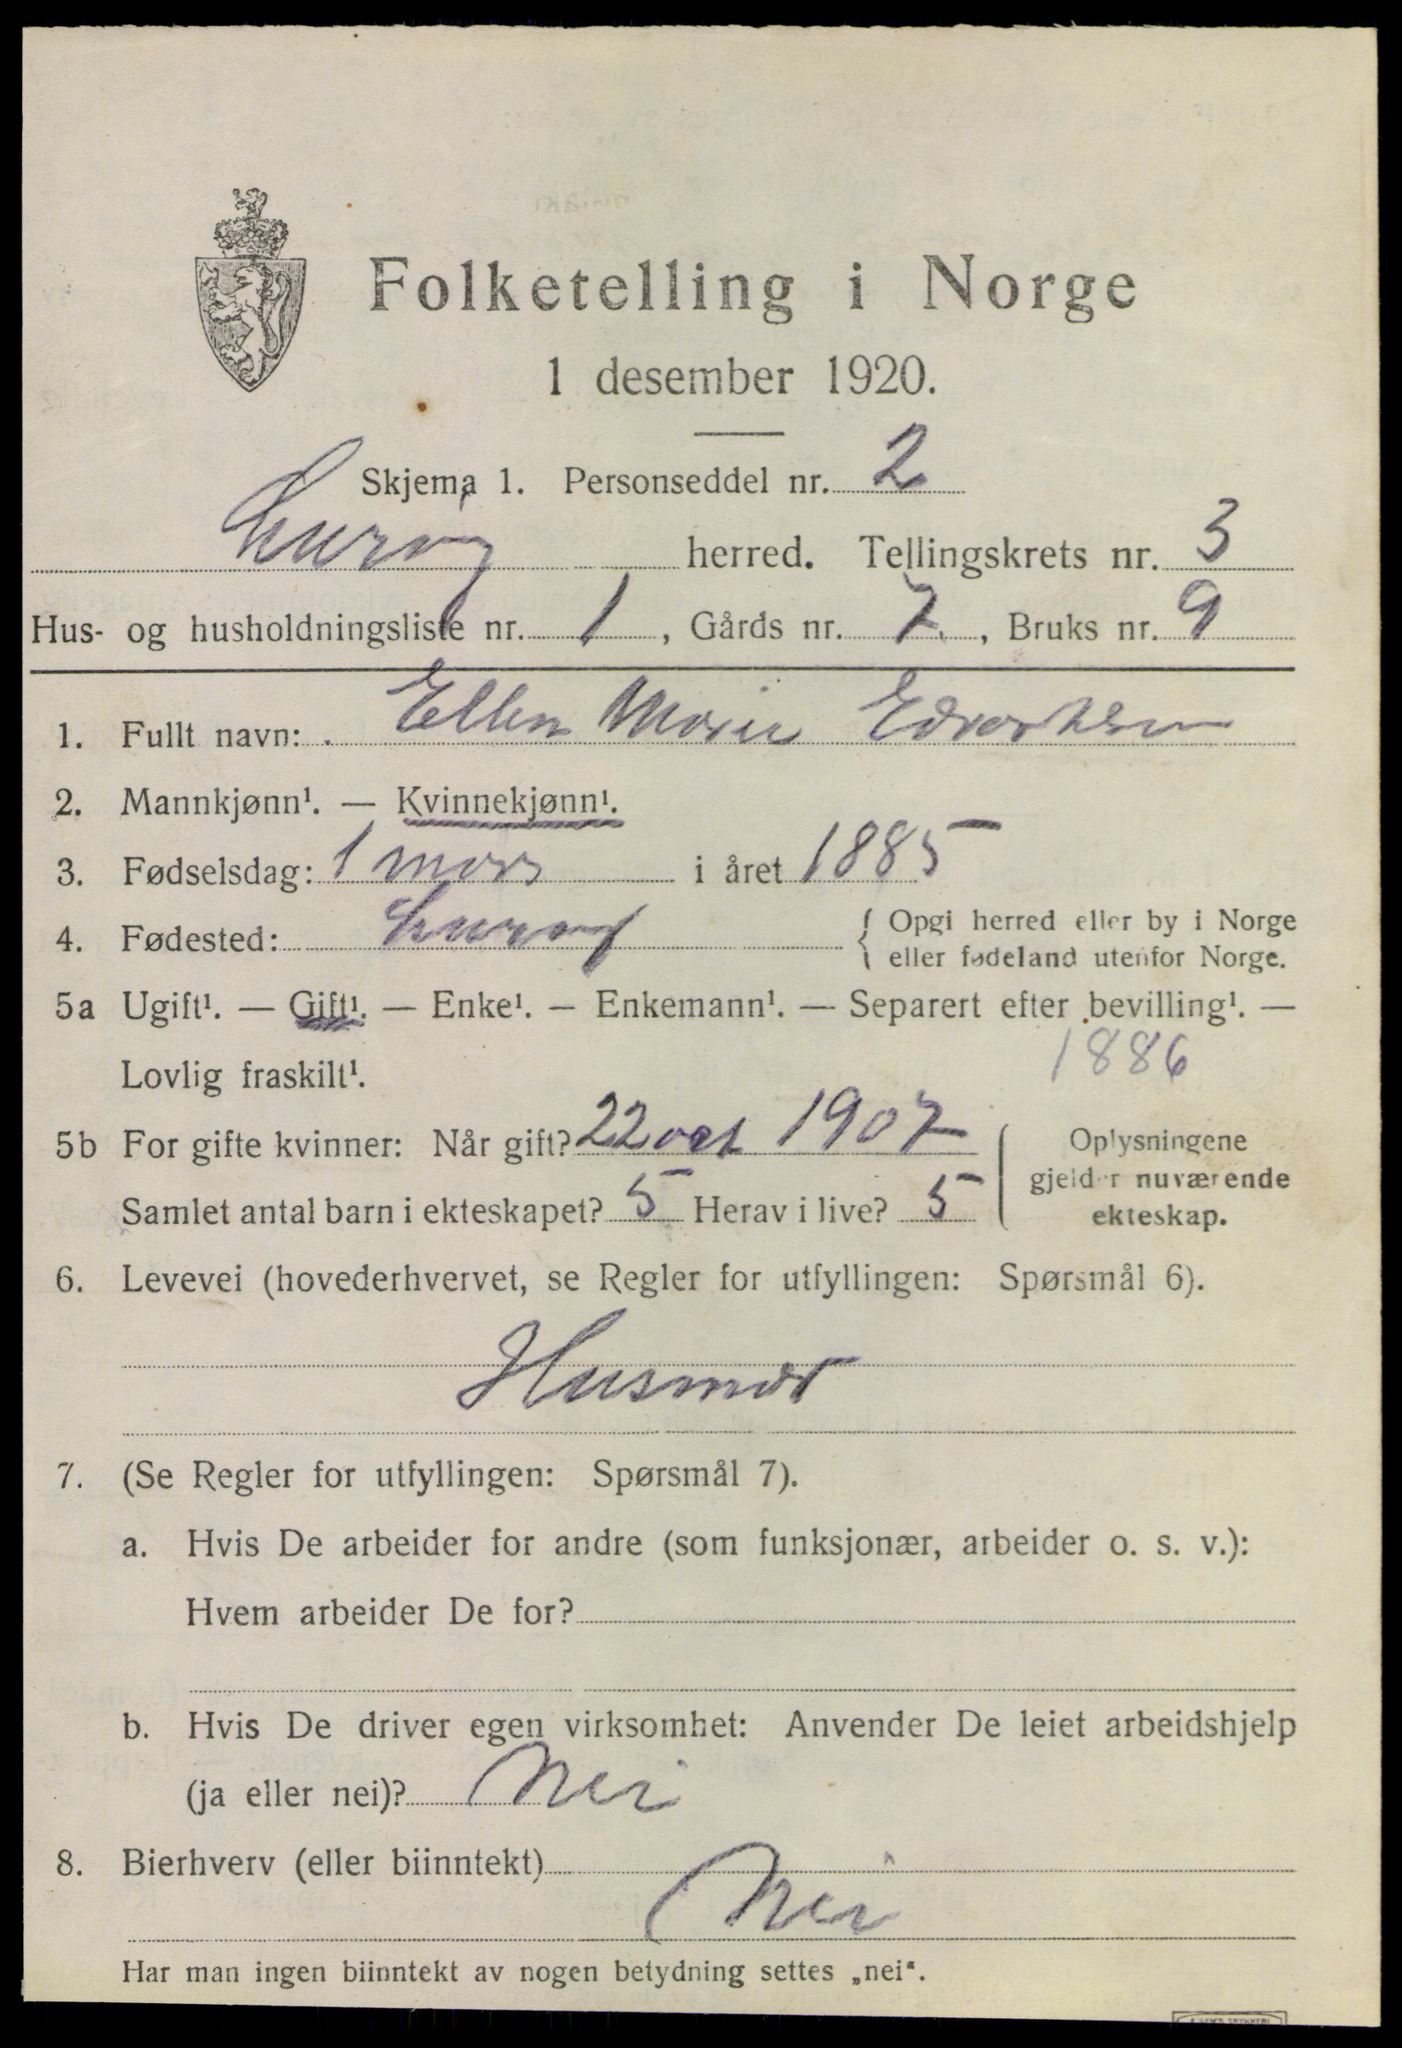 Folketelling i Norge
1 desember 1920.
Skjema 1. Personseddel nr. 2
Lurøy herred. Tellingskrets nr. 3
Hus- og husholdningsliste nr. 1, Gårds nr. 7, Bruks nr. 9
1. Fullt navn: Ellen Marie Edvartsen
2. Mannkjønn¹. — Kvinnekjønn¹.
3. Fødselsdag: 1 mars i året 1885
4. Fødested: Lurøy { Opgi herred eller by i Norge
eller fødeland utenfor Norge.
5a Ugift¹. — Gift¹. — Enke¹. — Enkemann¹. — Separert efter bevilling¹. —
Lovlig fraskilt¹. 1886
5b For gifte kvinner: Når gift? 22 oct 1907
Samlet antal barn i ekteskapet? 5 Herav i live? 5
Oplysningene
gjelder nuværende
ekteskap.
6. Levevei (hovederhvervet, se Regler for utfyllingen: Spørsmål 6).
Husmor
7. (Se Regler for utfyllingen: Spørsmål 7).
a. Hvis De arbeider for andre (som funksjonær, arbeider o. s. v.):
Hvem arbeider De for?
b. Hvis De driver egen virksomhet: Anvender De leiet arbeidshjelp
(ja eller nei)? Nei
8. Bierhverv (eller biinntekt)
Nei
Har man ingen biinntekt av nogen betydning settes „nei“.